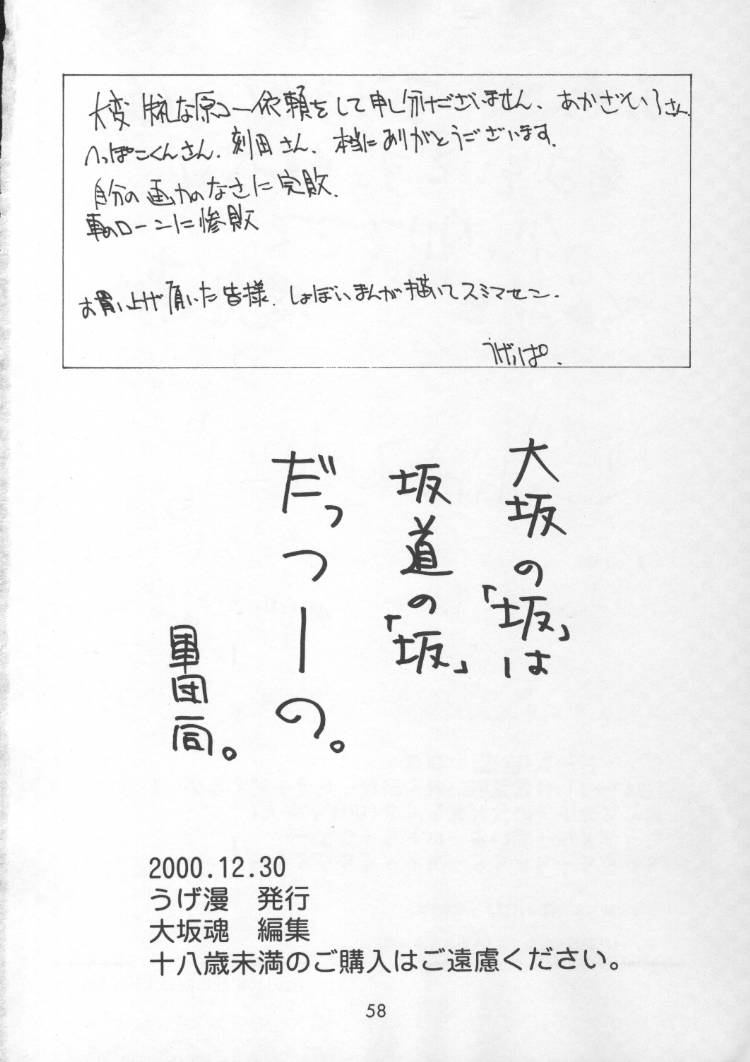 大変 無な原コー依頼をして申し分けございません、あかざいろさん
へっぽこくんさん、刻田さん、本当にありがとうございます。
自分の画力のなさに完敗.
車のローンに惨敗
お買い上げ頂いた皆様、しょぼいまんが描いてスミマセン.
うげっぱ.
大坂の「坂」は
坂道の「坂」
だっつーの。
軍団一同。
2000.12.30
うげ漫 発行
大坂魂 編集
十八歳未満のご購入はご遠慮ください。
58